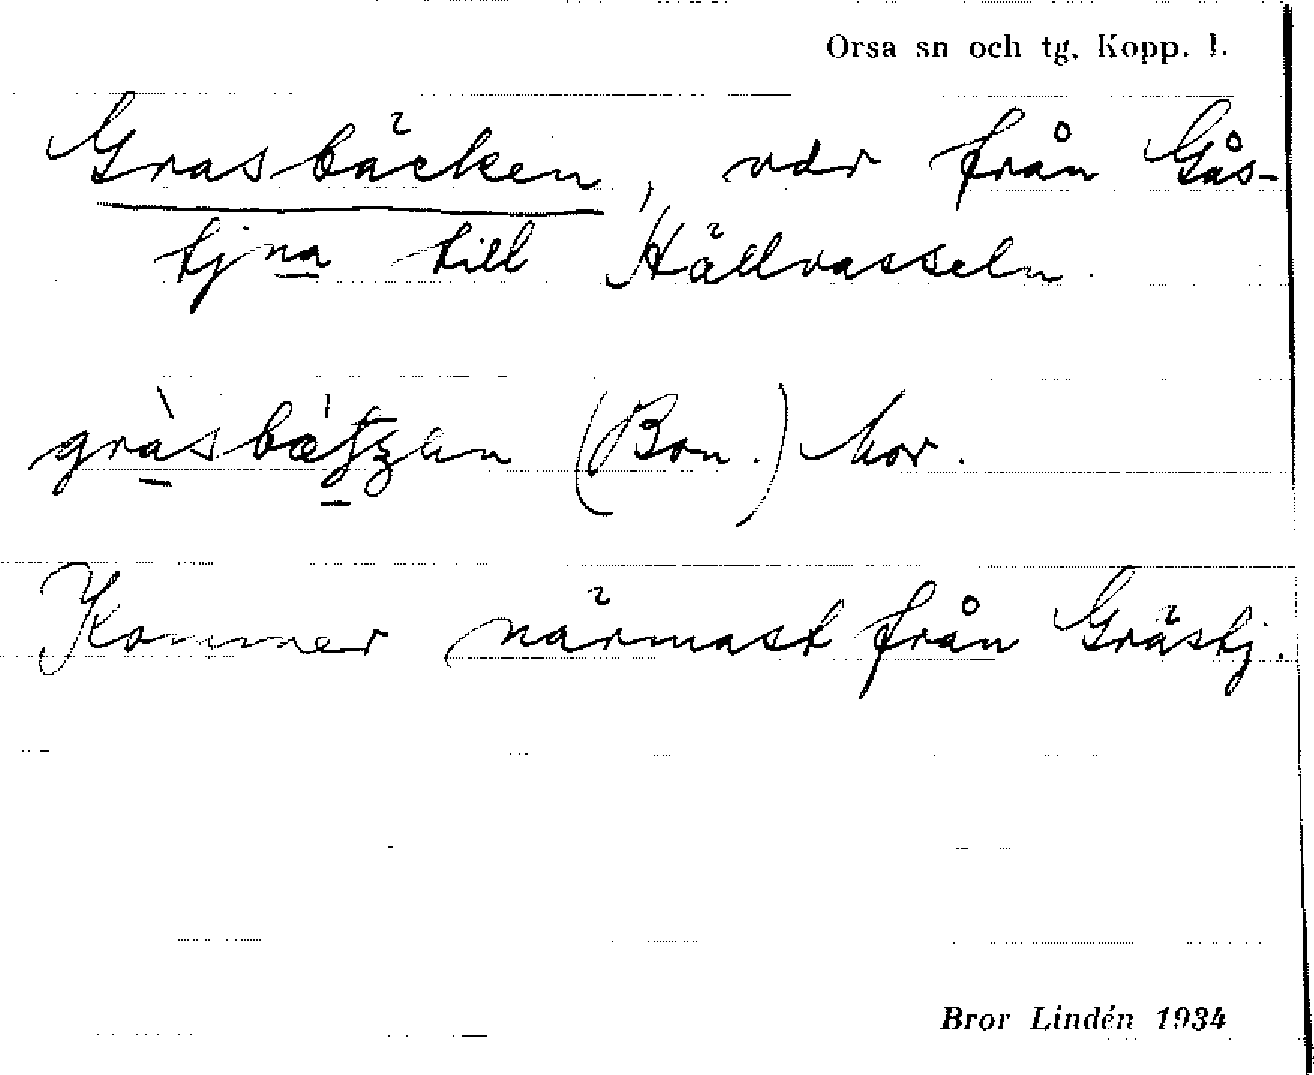 Orsa sn och tg. Kopp. l.
Gräsbäcken, vdr från Gås-
tjna till Hällvasseln.
(Bon.) hor.
Kommer närmast från Grästj.
Bror Lindén 1934